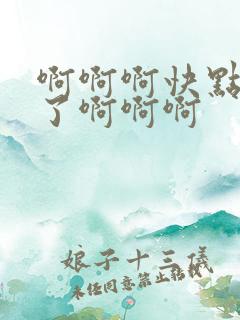 啊啊啊快點
了啊啊啊
娘子十三儀
未經同意禁止轉載